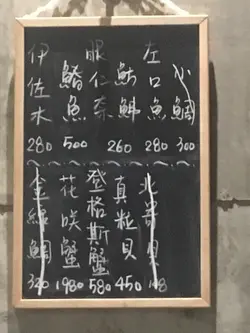 小鯛 300
左口魚 280
魴鮄 260
眼仁奈 
鰆魚 500
伊佐木 280
真粒貝 450
登格斯蟹 580
花咲蟹 1980
金線鯛 320